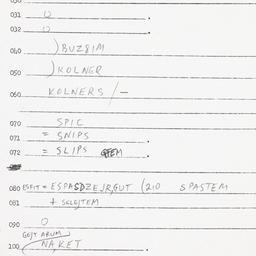 031
032
040 )BUZSIM
050 )KOLNER
060 KOLNERS /-
070 SPIC
071 = SNIPS
072 = SLIPS
080 ESFIT = ESPASDZEJRGUT (210 SPASTEM
081 + SKLOJTEM
090 O
100 NAKET